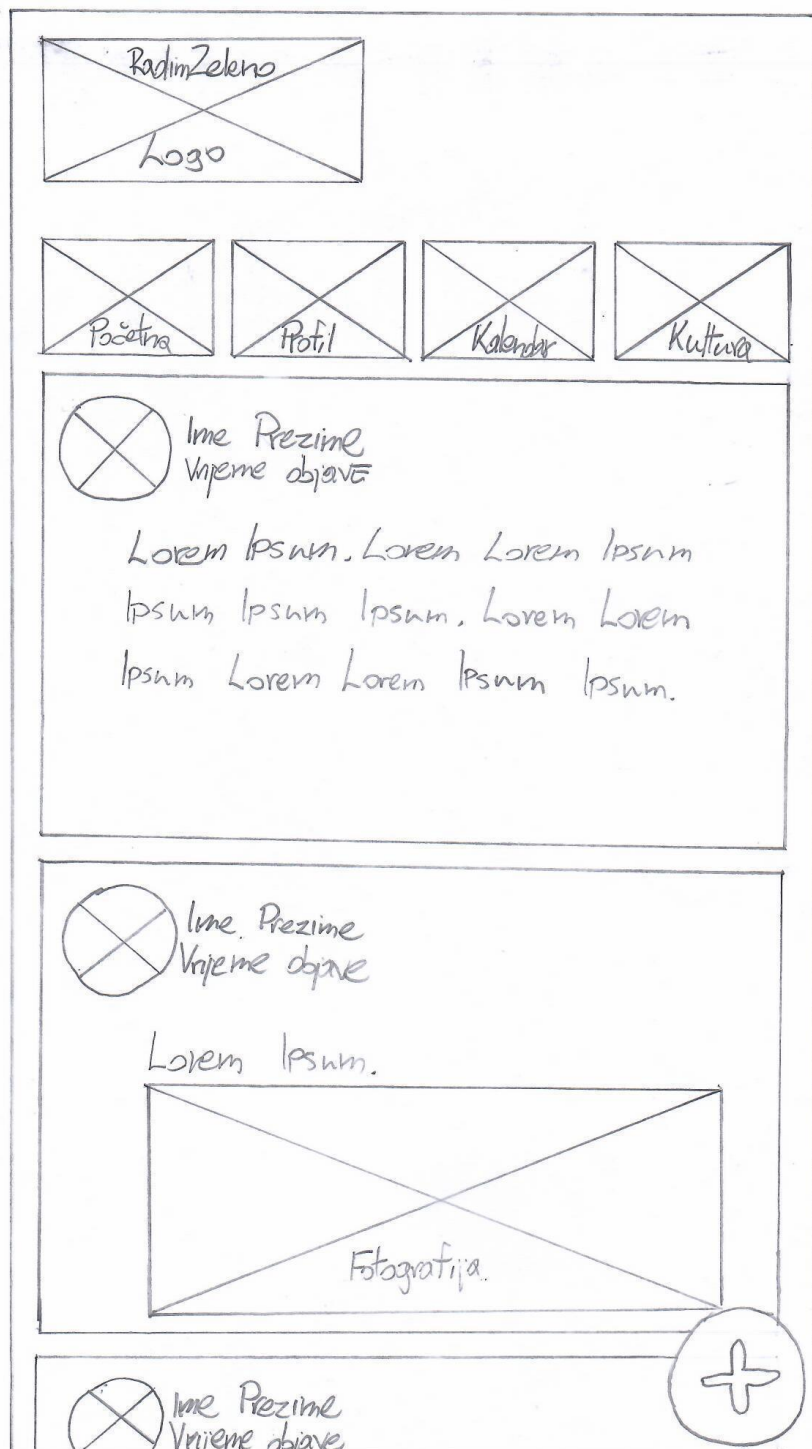 RadimZeleno
Logo
Početna
Profil
Kalendar
Kultura
Ime Prezime
Vrijeme objave
Lorem Ipsum. Lorem Lorem Ipsum
Ipsum Ipsum Ipsum. Lorem Lorem
Ipsum Lorem Lorem Ipsum Ipsum.
Ime Prezime
Vrijeme objave
Lorem Ipsum.
Fotografija.
Ime Prezime
Vrijeme objave